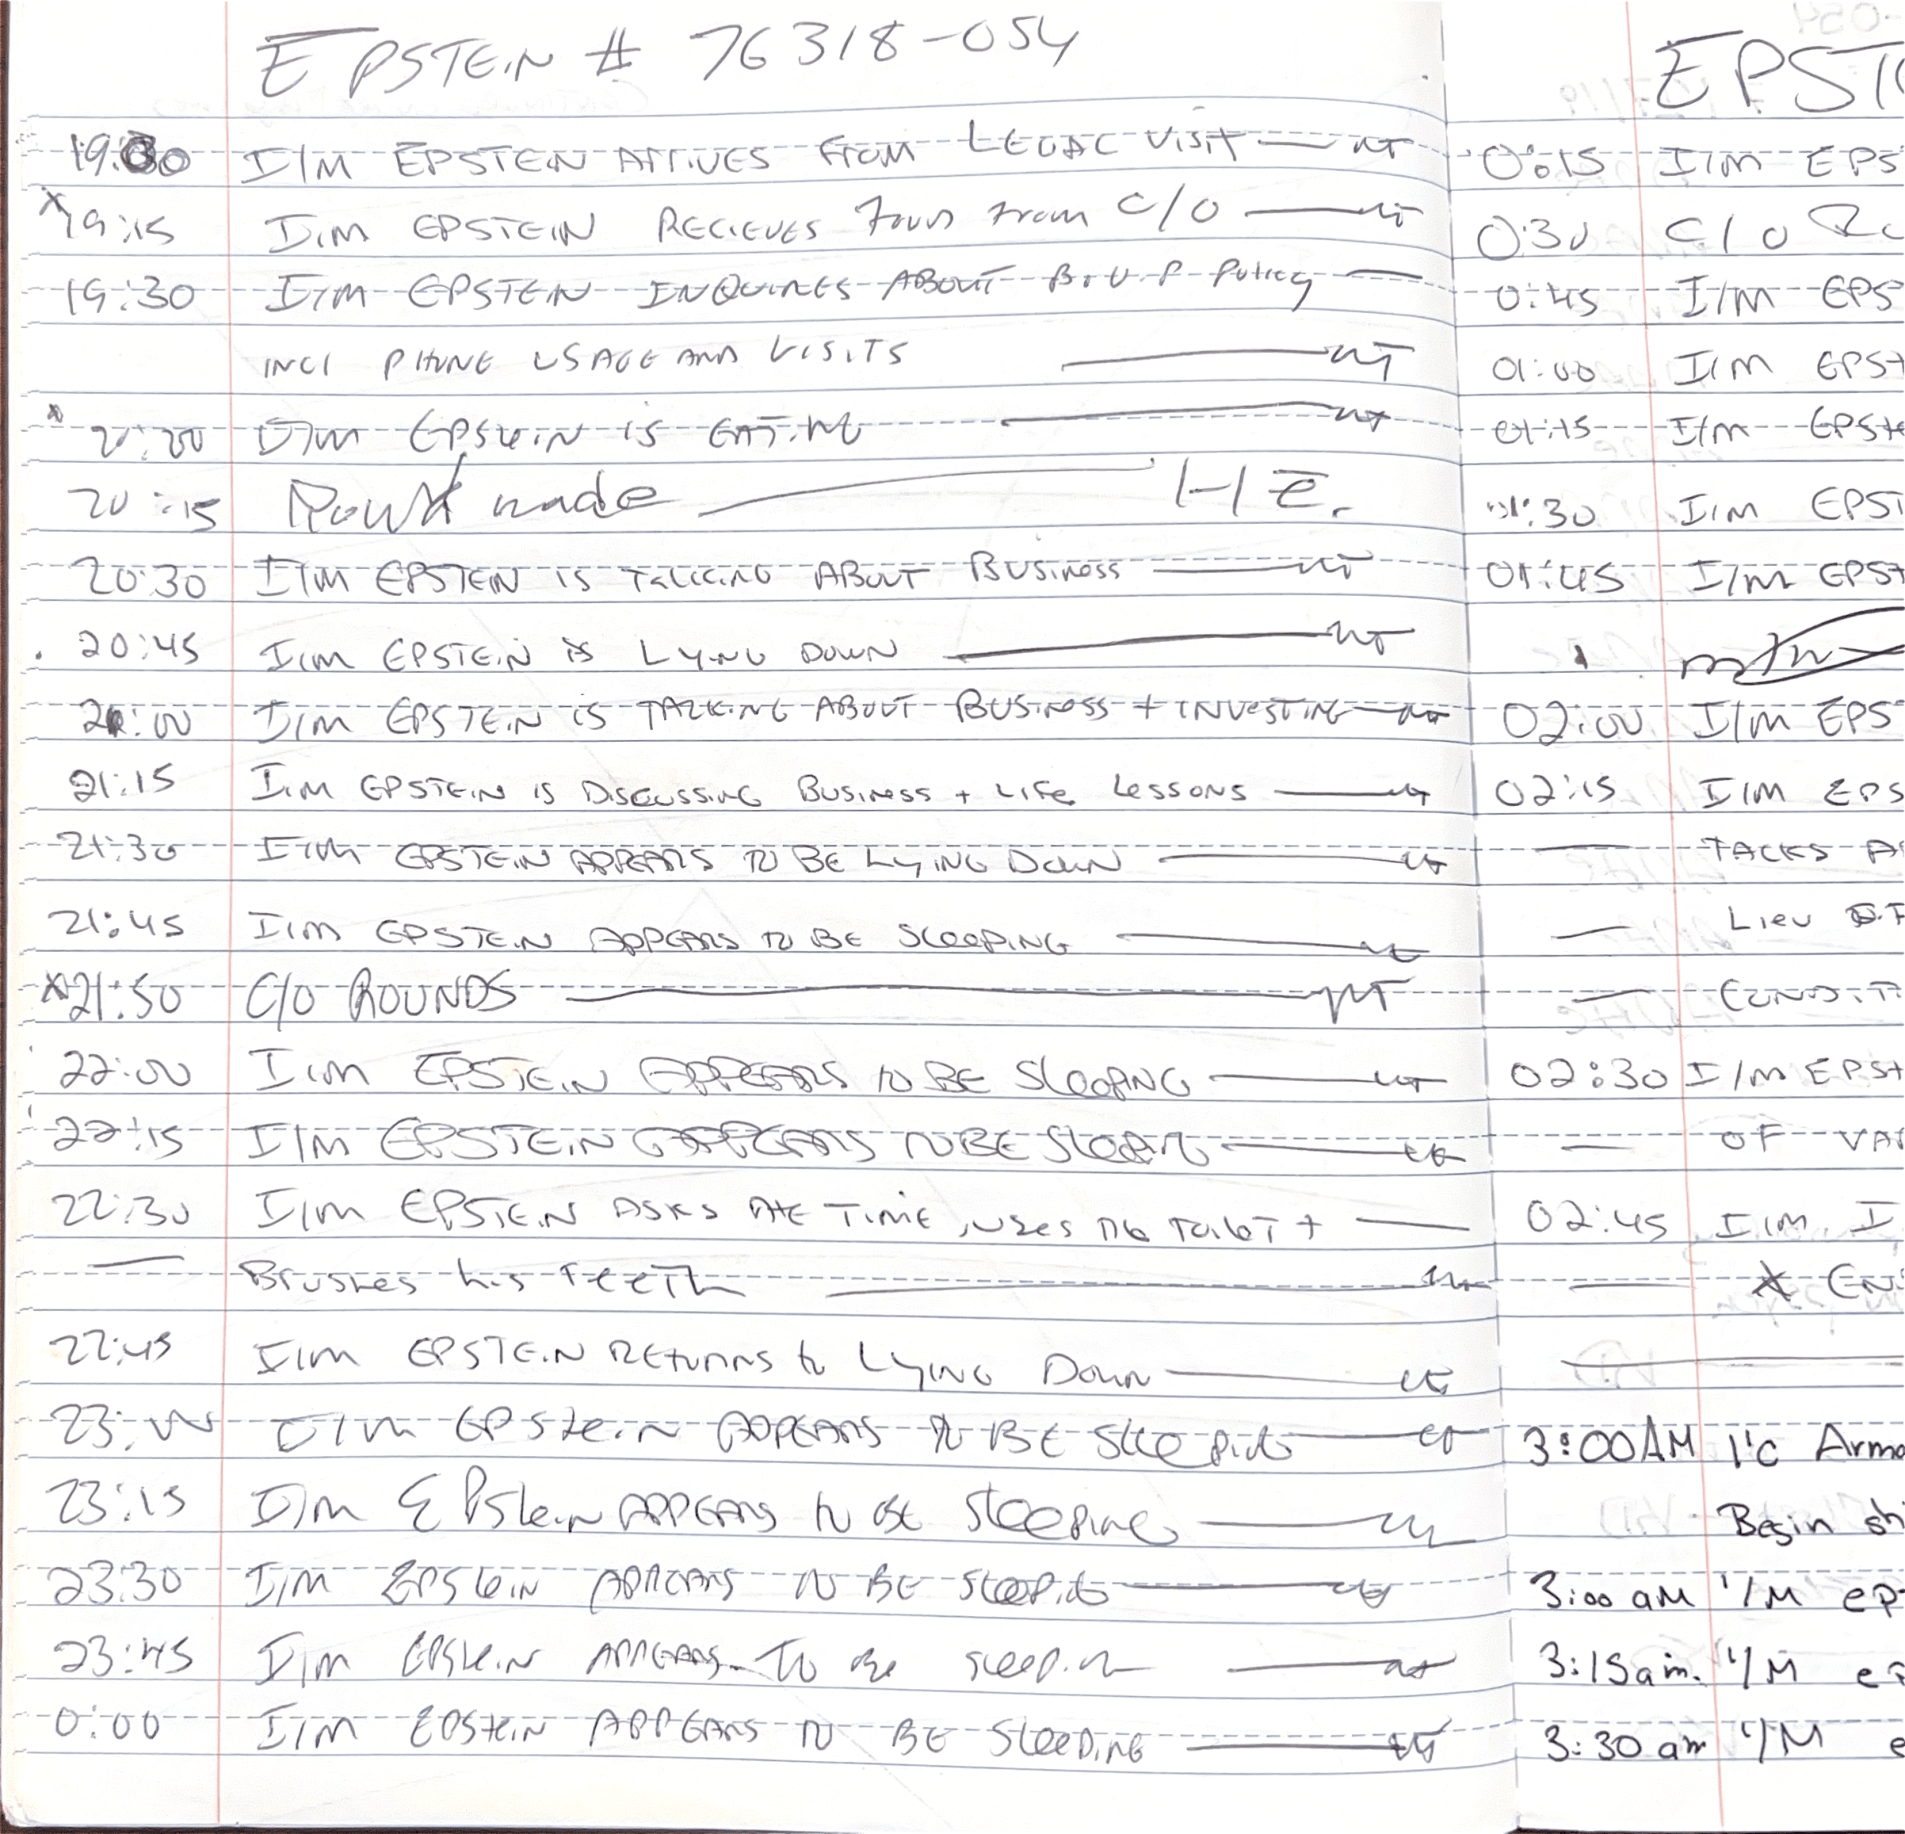 EPSTEIN # 76318-054
19:00 I/M EPSTEIN ARRIVES FROM LEGAL VISIT — NT
19:15 I/M EPSTEIN RECIEVES FOOD from C/O — NT
19:30 I/M EPSTEIN INQUIRES ABOUT B.O.P Policy —
INCl PHONE USAGE AND VISITS — NT
20:00 I/M EPSTEIN IS EATING — NT
20:15 Round made — HE.
20:30 I/M EPSTEIN IS TALKING ABOUT BUSINESS — NT
20:45 I/M EPSTEIN is LYING DOWN — NT
21:00 I/M EPSTEIN IS TALKING ABOUT BUSINESS + INVESTING — NT
21:15 I/M EPSTEIN IS DISCUSSING BUSINESS + LIFE LESSONS — NT
21:30 I/M EPSTEIN APPEARS TO BE LYING DOWN — NT
21:45 I/M EPSTEIN APPEARS TO BE SLEEPING — NT
21:50 C/O ROUNDS — NT
22:00 I/M EPSTEIN APPEARS TO BE SLEEPING — NT
22:15 I/M EPSTEIN APPEARS TO BE SLEEPING — NT
22:30 I/M EPSTEIN ASKS THE TIME, USES THE TOILET + —
— Brushes his TEETH — NT
22:45 I/M EPSTEIN RETURNS to LYING DOWN — NT
23:00 I/M EPSTEIN APPEARS TO BE SLEEPING — NT
23:15 I/M EPSTEIN APPEARS TO BE SLEEPING — NT
23:30 I/M EPSTEIN APPEARS TO BE SLEEPING — NT
23:45 I/M EPSTEIN APPEARS TO BE SLEEPING — NT
0:00 I/M EPSTEIN APPEARS TO BE SLEEPING — NT
EPST
0:15 I/M EPS
0:30 C/O
0:45 I/M EPS
01:00 I/M EPST
01:15 I/M EPSTE
01:30 I/M EPST
01:45 I/M EPST
02:00 I/M EPS
02:15 I/M EPS
— TALKS A
— Lieu
— CONDIT
02:30 I/M EPST
— OF VAR
02:45 I/M. I
3:00AM I'C Arma
Begin sh
3:00 aM I/M ep
3:15am. I/M e
3:30 am I/M e